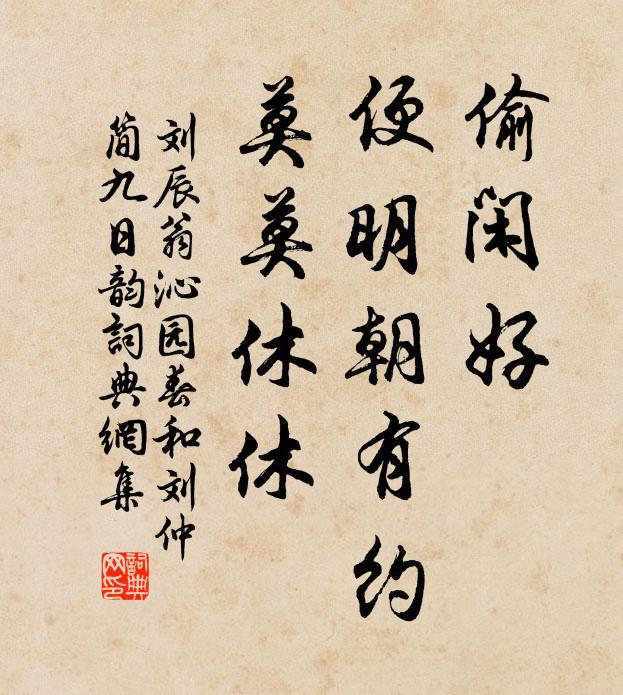 偷闲好
便明朝有约
莫莫休休
刘辰翁沁园春和刘仲
简九日韵詞典網集
詞典
网印